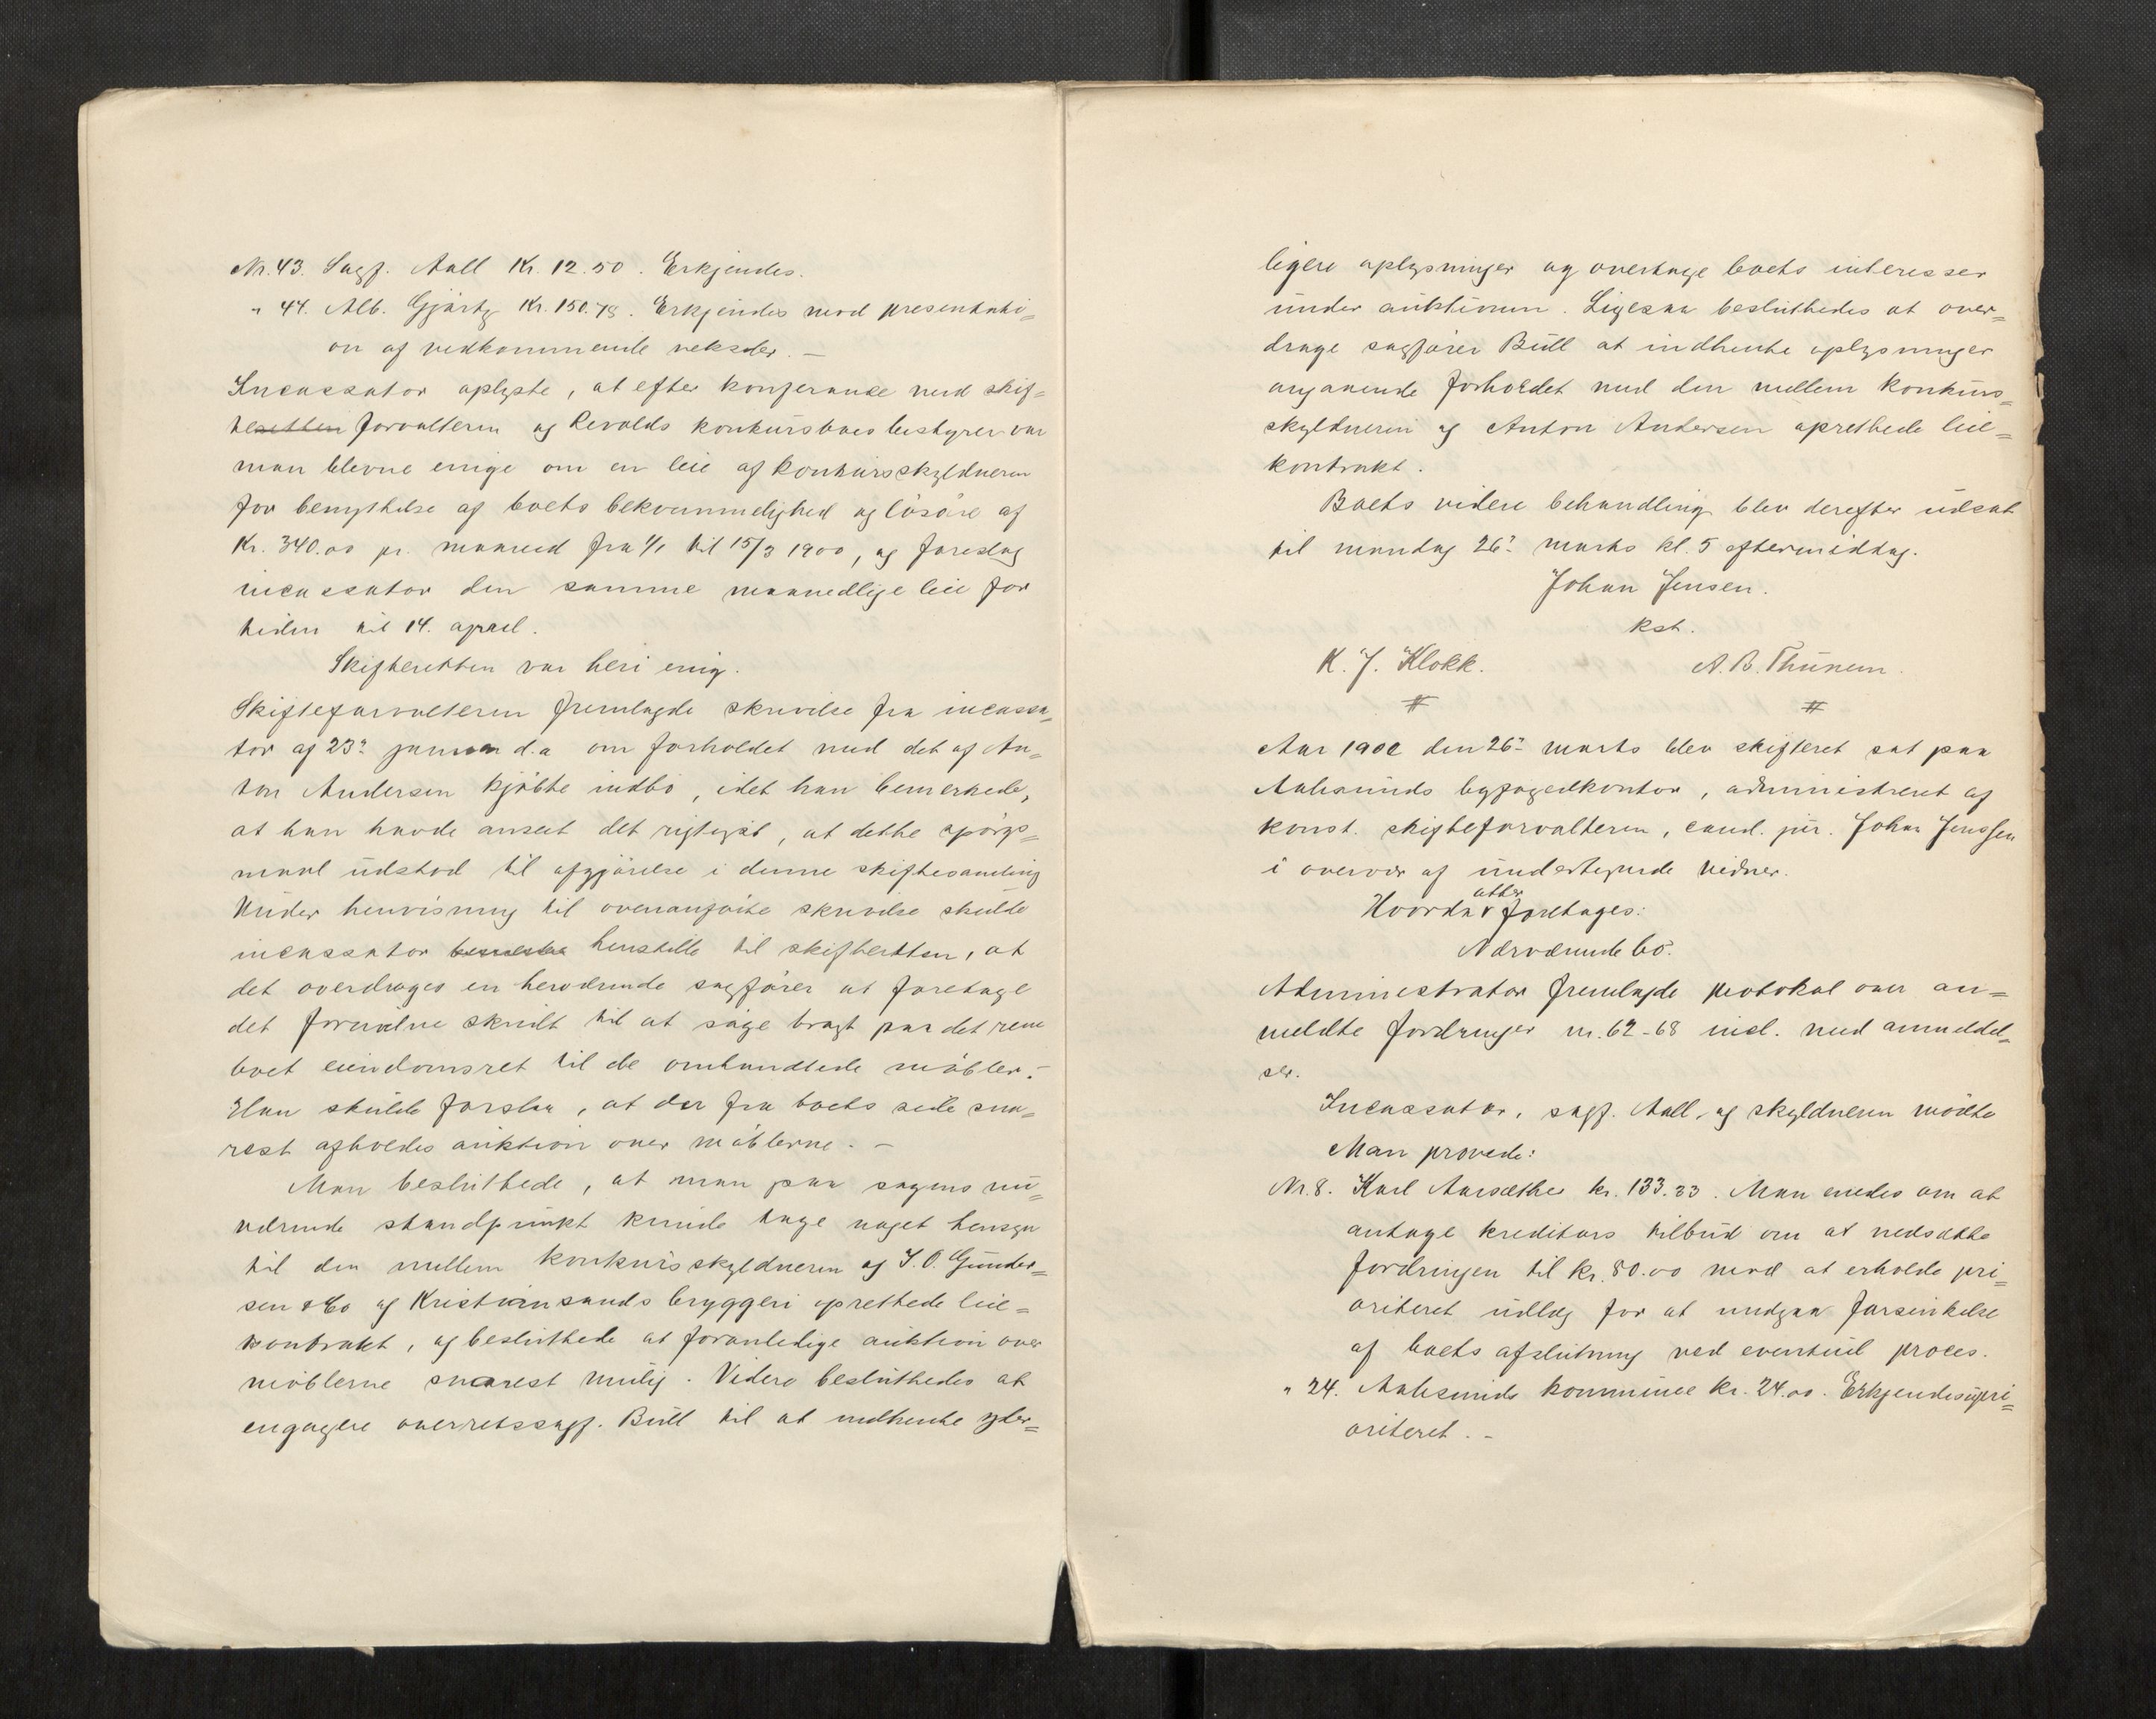 Nr. 43. Sagf. Aall Kr. 12.50. Erkjendes.
" 44. Alb. Gjörtz Kr. 150.78. Erkjendes mod presentati=
on af vedkommende veksler. —
Incassator oplyste, at efter konferanse med skif=
teretten forvalteren og Revolds konkursboes bestyrer var
man blevne enige om en leie af konkursskyldneren
for benyttelse af boets bekvemmelighed og lösöre af
Kr. 340.00 pr. maaned fra 1/1 til 15/3 1900, og foreslog
incassator den samme maanedlige leie for
tiden til 14. april.
Skifteretten var heri enig.
Skifteforvalteren fremlagde skrivelse fra incassa=
tor af 23de januar d.a om forholdet med det af An=
ton Andersen kjöbte indbo, idet han bemerkede,
at han havde anseet det rigtigst, at dette spörgs=
maal udstod til afgjörelse i denne skiftesamling
Under henvisning til ovenanförte skrivelse skulde
incassator henstille til skifteretten, at
det overdroges en herværende sagförer at foretage
det fornödne skridt til at söge bragt paa det rene
boet eiendomsret til de omhandlede möbler.-
Han skulde foreslaa, at der fra boets side sna=
rest afholdes auktion over möblerne. —
Man besluttede, at man paa sagens nu=
værende standpunkt kunde tage noget hensyn
til den mellem konkursskyldneren og J. O. Gunder=
sen & Co og Kristiansands bryggeri oprettede leie=
kontrakt, og besluttede at foranledige auktion over
möblerne snarest mulig. Videre besluttedes at
engagere overretssagf. Bull til at indhente yder=
ligere oplysninger og overtage boets interesser
under auktionen. Ligesaa besluttedes at over=
drage sagförer Bull at indhente oplysninger
angaaende forholdet med den mellem konkurs=
skyldneren og Anton Andersen oprettede leie=
kontrakt.
Boets videre behandling blev derefter udsat
til mandag 26de marts kl. 5 eftermiddag.
Johan Jensen.
kst.
K. J. Klokk. A. B. Thunem.
# #
Aar 1900 den 26de marts blev skifteret sat paa
Aalesunds byfogedkontor, administreret af
konst. skifteforvalteren, cand. jur. Johan Jenssen
i overvær af undertegnede vidner.
atter
Hvorda foretages:
Nærværende bo.
Administrator fremlagde protokol over an=
meldte fordringer nr. 62-68 incl. med anmeldel=
ser.
Incassator, sagf. Aall, og skyldneren mödte
Man prövede:
Nr. 8. Karl Aarsæther kr. 133.33. Man enedes om at
antage kreditors tilbud om at nedsætte
fordringen til kr. 80.00 mod at erholde pri=
oriteret udlæg for at undgaa forsinkelse
af boets afslutning ved eventuel proces.
" 24. Aalesunds kommune kr. 24.00. Erkjendes upri=
oriteret. -